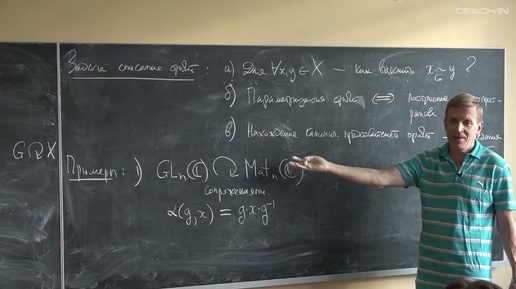 TEACH-IN
Задача описания орбит: а) Для ∀x,y ∈ X — как выяснить x ~_G y ?
б) Параметризация орбит ⟺ построение
в) Нахождение канонич. представителей орбит
G ↷ X
Примеры: 1) GLn(ℂ) ↷ Matn(ℂ)
сопряжениями
α(g,x) = g·x·g⁻¹